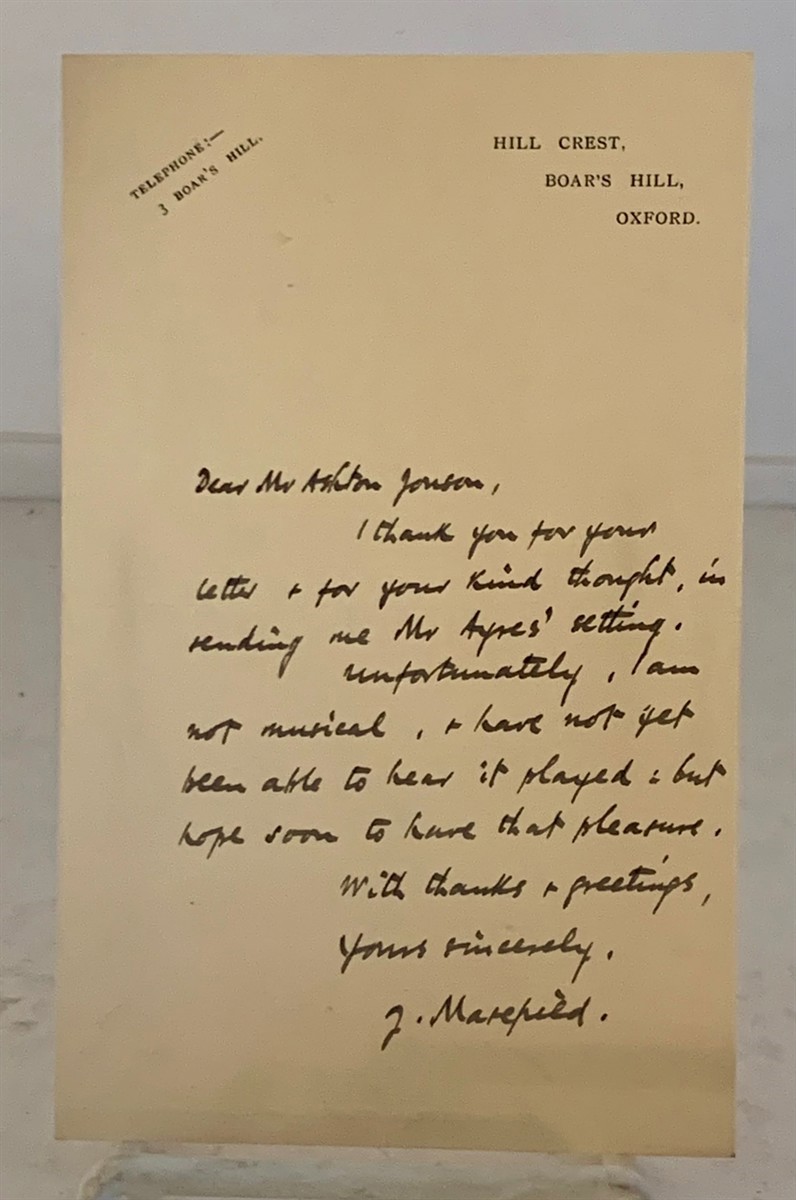 TELEPHONE:—
3 BOAR'S HILL.
HILL CREST,
BOAR'S HILL,
OXFORD.
Dear Mr Ashton Jonson,
I thank you for your
letter & for your kind thought, in
sending me Mr Ayres' setting.
Unfortunately, I am
not musical, & have not yet
been able to hear it played: but
hope soon to have that pleasure.
With thanks & greetings,
Yours sincerely.
J. Masefield.